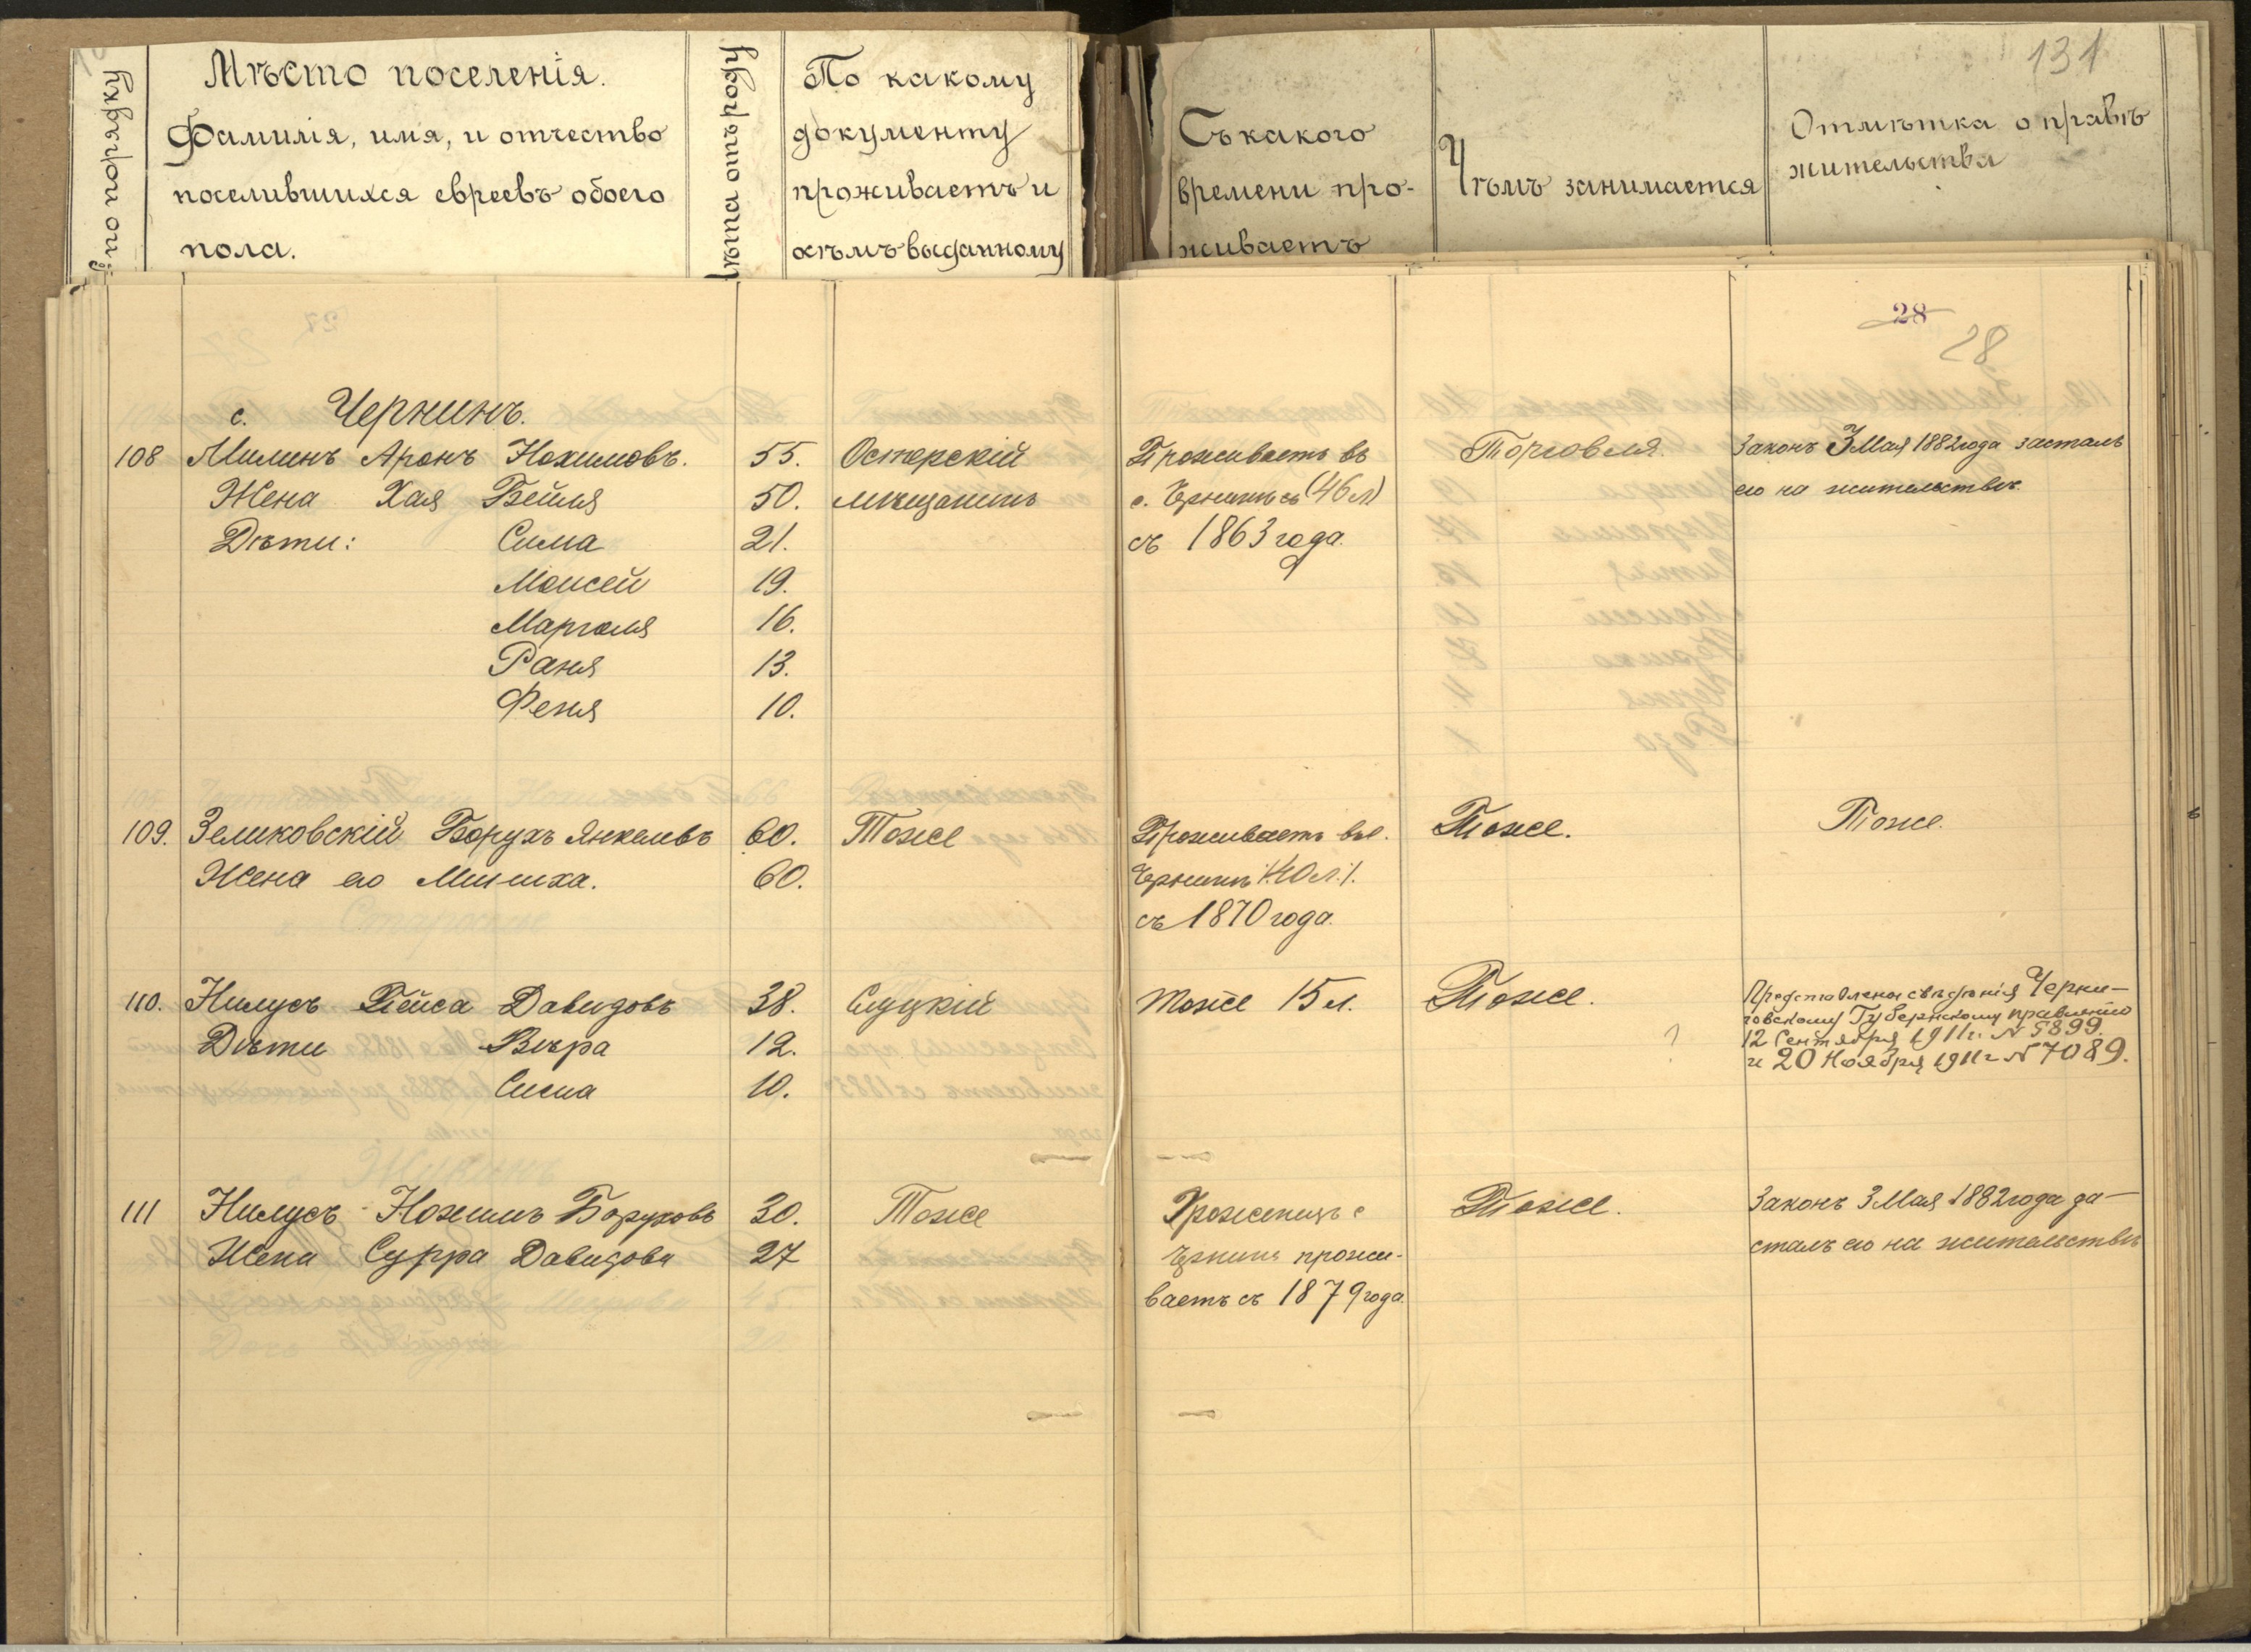 131
№ по порядку
Мѣсто поселенія.
Фамилія, имя, и отчество
поселившихся евреевъ обоего
пола.
Лѣта отъ роду
По какому
документу
проживаетъ и
кѣмъ выданному
Съ какого
времени про-
живаетъ
Чѣмъ занимается
Отмѣтка о правѣ
жительства
28
28
с. Чернинъ.
108 Милинъ Аронъ Нохимовъ. 55. Остерскій Проживаетъ въ Торговля. Законъ 3 Мая 1882 года засталъ
Жена Хая Бейля 50. мѣщанинъ с. Чернинѣ (46 л) его на жительствѣ.
Дѣти: Сима 21. съ 1863 года.
Моисей 19.
Марголя 16.
Раня 13.
Феня 10.
109. Зеликовскій Борухъ Янкелевъ 60. Тоже Проживаетъ въ с. Тоже. Тоже.
Жена его 60. Чернинѣ /:40 л:/.
съ 1870 года.
110. Нилусъ Пейса Давидовъ 38. Слуцкій тоже 15 л. Тоже. Представлены свѣдѣнія Черни-
говскому Губернскому правленію
Дѣти Вѣра 12. ? 12 Сентября 1911 г. № 5899.
и 20 Ноября 1911 г № 7089.
Сима 10.
111 Нилусъ Нохимъ Боруховъ 30. Тоже Уроженецъ с Тоже. Законъ 3 Мая 1882 года за-
Жена Сурра Давидова 27 Чернина прожи- сталъ его на жительствѣ
ваетъ съ 1879 года.